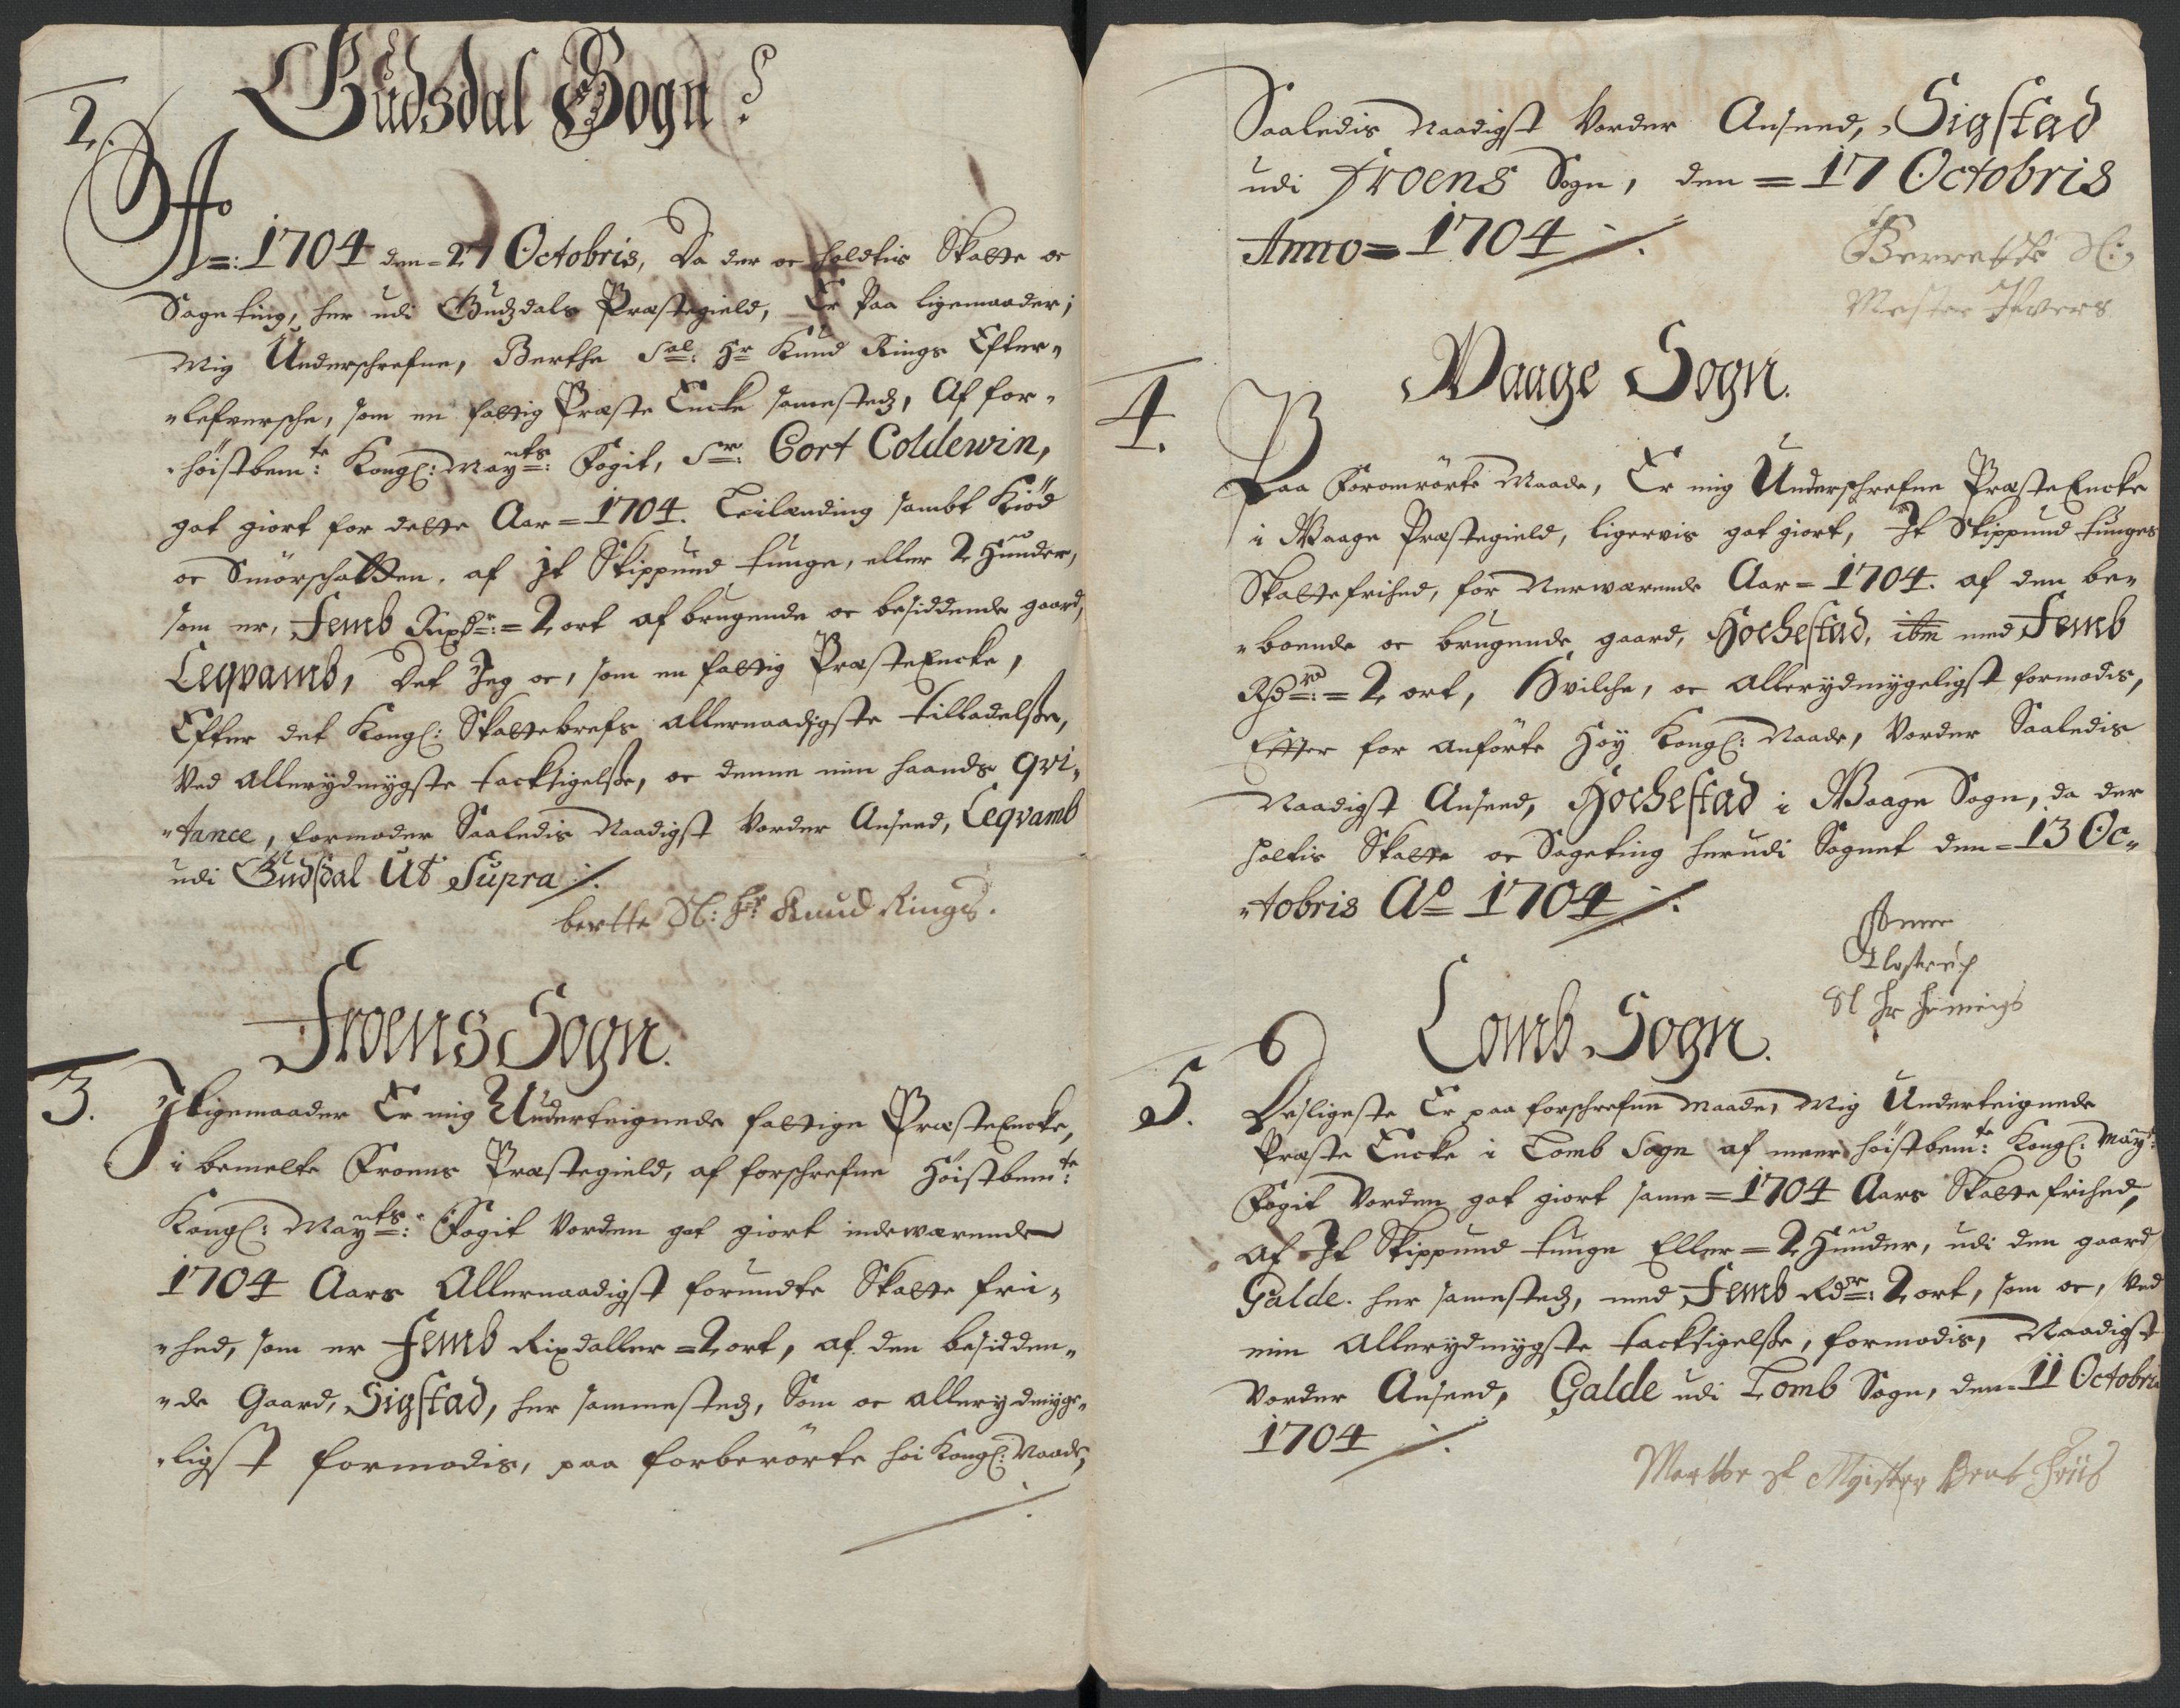 2.
Gudsdal Sogn
Ao =: 1704 den = 27 Octobris, Da der oc holdtis Skatte oc
Sage ting, her udi Gudzdals Præstegield, Er Paa ligemaader;
Mig Underschrefne, Berthe Sal: Hr Knud Rings Efter-
"lefversche, som en fattig Præste Encke samestedz, Af for-
"høistbemte: Kongl: Mayts: Fogit, Sr: Cort Coldewin,
got giort for dette Aar = 1704. Leilænding sambt Kiød
oc Smörschatten. af It Skippund tunge, eller 2 Hunder,
som er, Femb Rixdr: = 2 ort af brugende oc besiddende gaard,
Leqvamb, Det Jeg oc, som en fattig Præste Encke,
Efter det Kongl: Skattebrefs allernaadigste tilladelße,
Ved allerydmygste tacksigelße, oc denne min haands qvi-
"tance, formoder Saaledis Naadigst Vorder Anseed, Leqvamb
udi Gudsdal Ut Supra ./.
berthe Sl: Hr Knud Rings.
Froens Sogn.
3. Iligemaader Er mig Underteignede fattige Præste Encke,
i bemelte Froens Præstegield, af forschrefne Höistbemte:
Kongl: Mayts: Fogit Vorden got giort indewærende
1704 Aars Allernaadigst forundte Skatte fri-
"hed, som er Femb Rixdaller = 2 ort, af den besidden-
"de Gaard, Sigstad, her sammestedz, Som oc allerydmyge-
"ligst formodis, paa forberörte höi Kongl: Naade,
./.
Saaledis Naadigst Vorder Anseed, Sigstad
udi Froens Sogn, den = 17 Octobris
Anno = 1704 ./.
Berrethe Sl:
Mester Ivers
Waage Sogn.
4. Paa Foromrörte Maade, Er mig Underschrefne Præste Encke
i Waage Præstegield, ligervis got giort, It Skippund tunges
Skattefrihed, for Nerwærende Aar = 1704. af den be-
"boende oc brugende gaard, Hochestad, ibm med Femb
Rdr: = 2 ort, Hvilche, oc Allerydmygeligst formodis,
Effter for anförte Höy Kongl: Naade, Vorder Saaledis
Naadigst Anseed, Hochestad i Waage Sogn, da der
holtis Skatte oc Sageting herudi Sognet den = 13 Oc-
"tobris Ao 1704 ./.
Anne
Sl Hr
Lomb Sogn.
5. Desligeste Er paa forschrefne Maade, Mig Underteignede
Præste Encke i Lomb Sogn af meer höistbemte: Kongl: Mayts:
Fogit Vorden got giort same = 1704 Aars Skatte frihed,
Af It Skippund tunge Eller = 2 Hunder, udi den gaard
Galde. her samestedz, med Femb Rdr: 2 ort, som oc, Ved
min Allerydmygste tacksigelße, formodis, Naadigst
Vorder Anseed, Galde udi Lomb Sogn, den = 11 Octobris
1704 ./.
Marthe Sl Mgister